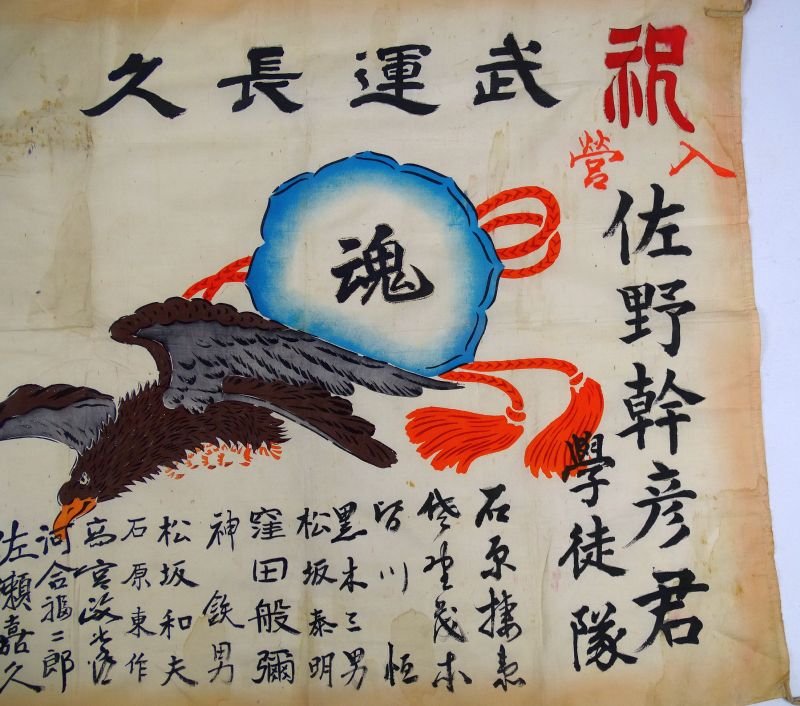 祝
入營
佐野幹彦君
學徒隊
武運長久
魂
石原
皆川恒
黒木三男
松坂泰明
窪田般彌
神鉄男
松坂和夫
石原東作
高宮政
河合福二郎
左瀬嘉久